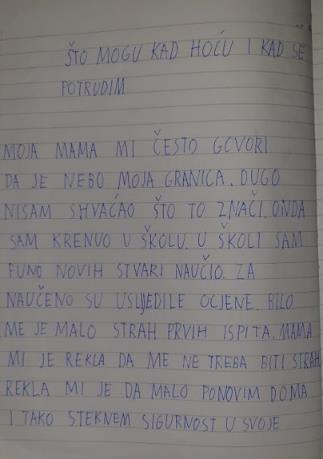 ŠTO MOGU KAD HOĆU I KAD SE
POTRUDIM
MOJA MAMA MI ČESTO GOVORI
DA JE NEBO MOJA GRANICA. DUGO
NISAM SHVAĆAO ŠTO TO ZNAČI. ONDA
SAM KRENUO U ŠKOLU. U ŠKOLI SAM
PUNO NOVIH STVARI NAUČIO. ZA
NAUČENO SU USLIJEDILE OCJENE. BILO
ME JE MALO STRAH PRVIH ISPITA. MAMA
MI JE REKLA DA ME NE TREBA BITI STRAH.
REKLA MI JE DA MALO PONOVIM DOMA
I TAKO STEKNEM SIGURNOST U SVOJE